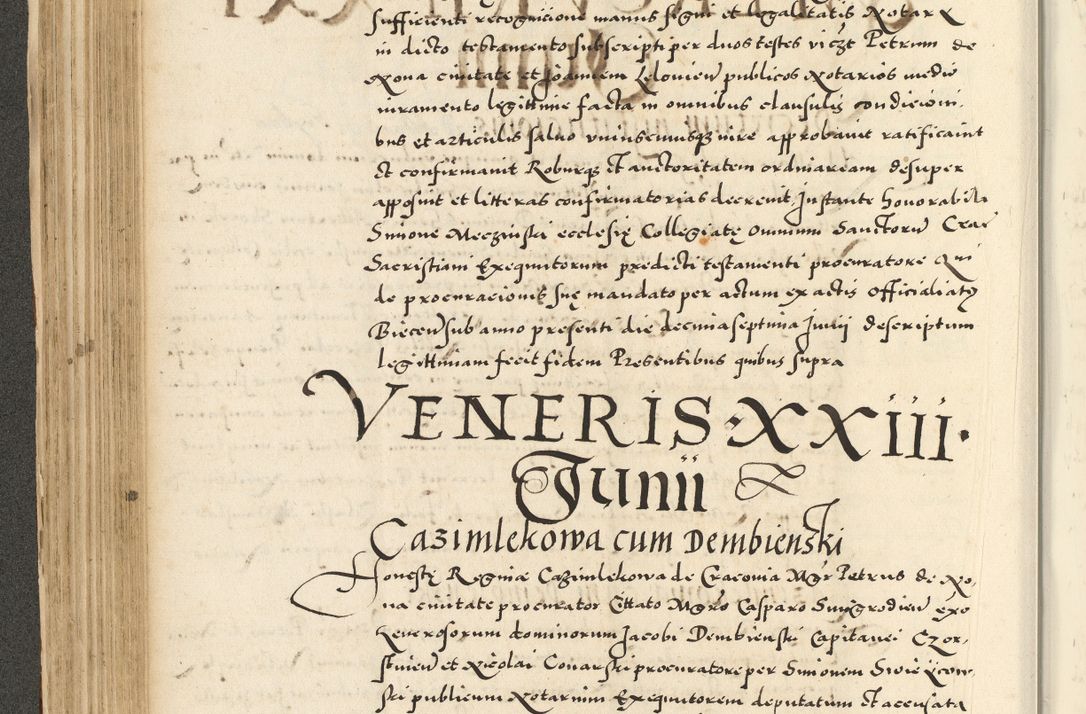 sufficienti recognicione manus signi et legalitatis Notar
in dicto testamento subscripti per duos testes viczt Petrum de
Nova civitate et Joannem Lelovien publicos Notarios medio
iuramento legittime facta in omnibus clausulis condicioni
bus et articulis salvo uniuscuiusqz iure approbavit ratificavit
et confirmavit Roburqz et auctoritatem ordinariam desuper
apposuit et litteras confirmatorias decrevit. Instante honorabili
Simone Meczinski ecclesię Collegiatę Omnium Sanctorum Crac
Sacristiani Exequutorum predicti testamenti procuratore Qui
de procuracionis suę mandato per actum ex actis officialatq
Biecen sub anno presenti die decima septima Junii descriptum
legittimam fecit fidem Presentibus quibus supra
VENERIS · XXIII ·
Junii
Cazimlekowa cum Dembienski
Honestę Reginae Cazimlekowa de Cracovia Mgr Petrus de No
na civitate procurator Cittato Mgro Casparo Smigrodien exo
Generosorum dominorum Jacobi Dembienski Capitanei Czor
stinen et Nicolai Conarski procuratore per Simonem
ski publicum Notarium Exequutorem deputatum et accusata